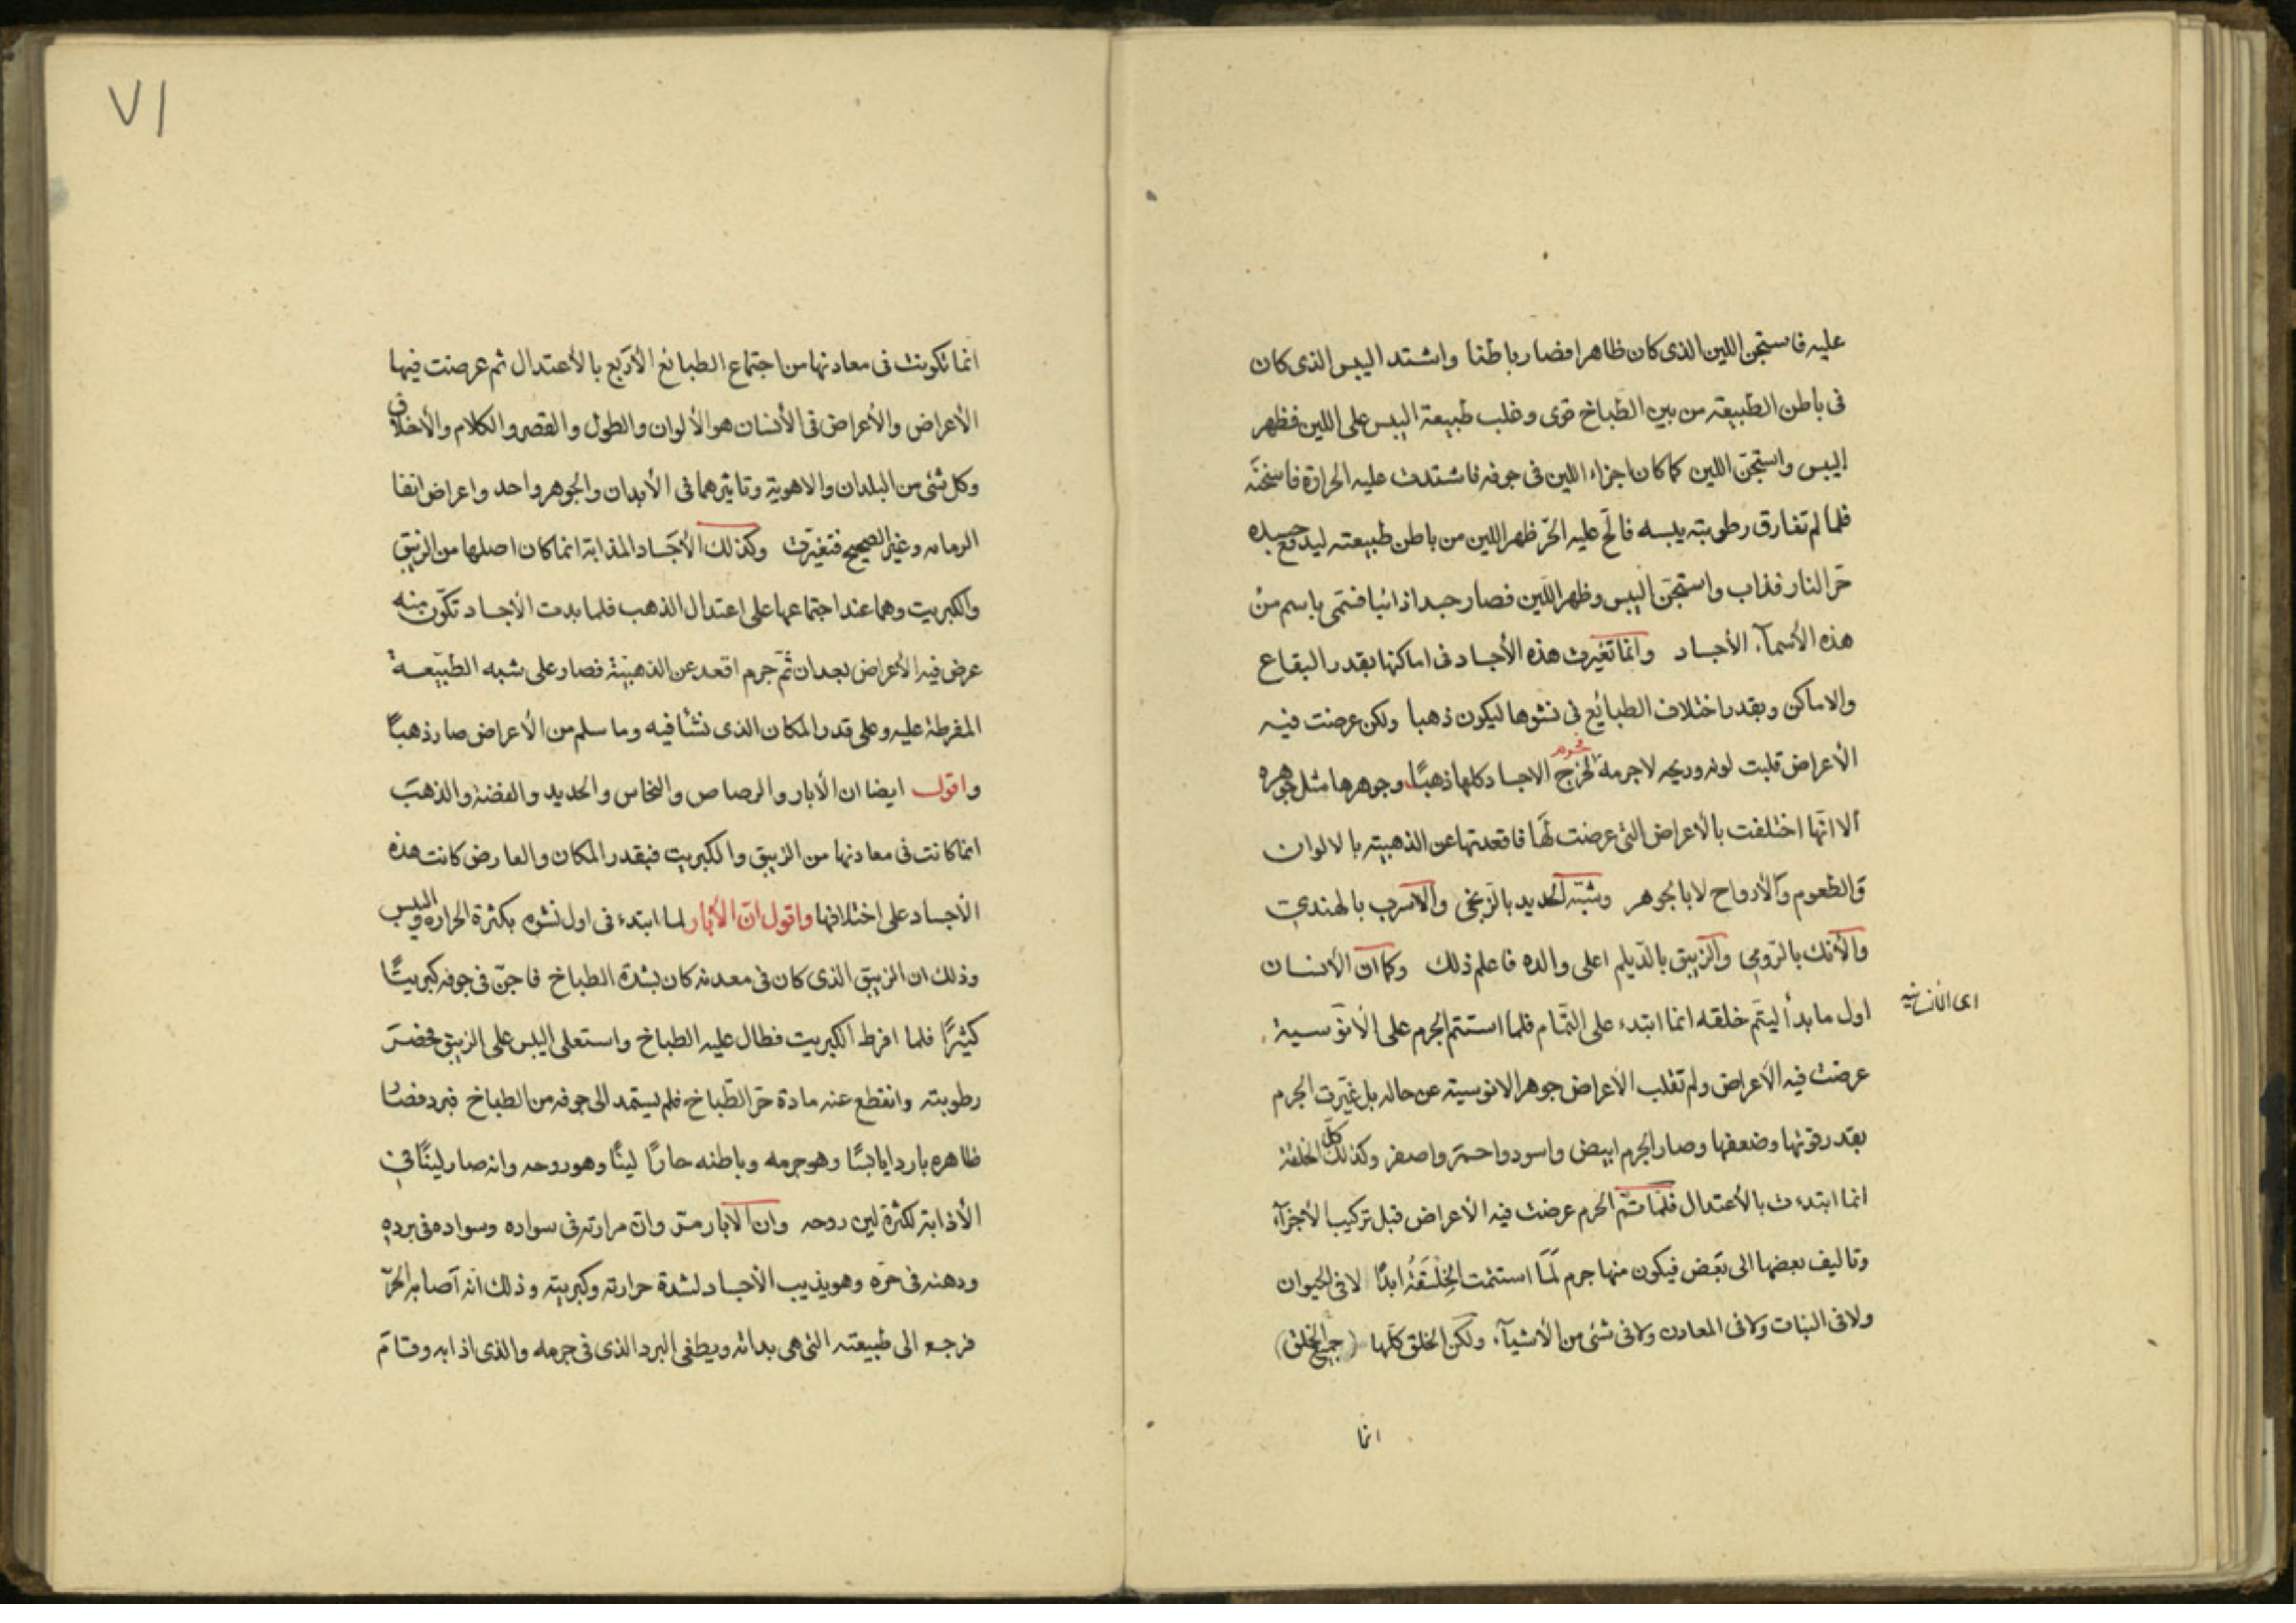 عليه فاستجن اللين الذى كان ظاهرا فصار باطنا واشتد اليبس الذى كان
فى باطن الطبيعة من بين الطباخ قوى وغلب طبيعة اليبس على اللين فظهر
اليبس واستجن اللين كما كان اجزاء اللين فى جوفه فاشتدت عليه الحرارة فاسخنته
فلما لم تفارق رطوبته يبسه فالح عليه الحر ظهر اللين من باطن طبيعته ليدفع جسده
حر النار فذاب واستجن اليبس وظهر اللين فصار جسدا ذائبا فسمى باسم من
هذه الأسمآء الأجساد وانما تغيرت هذه الأجساد فى اماكنها بقدر البقاع
والاماكن وبقدر اختلاف الطبائع فى نشوها ليكون ذهبا ولكن عرضت فيه
الأعراض قلبت لونه وريحه لا جرمه فجرم الاجساد كلها ذهبًا وجوهرها مثل جوهره
الا انها اختلفت بالأعراض التى عرضت لها فاقعدتها عن الذهبية بالالوان
والطعوم والأرواح لا بالجوهر وشبّه الحديد بالزنجى والاسرب بالهندى
والأنك بالرّومى والزيبق بالدّيلم اعلى والده فاعلم ذلك وكما ان الأنسان
اول ما بدأ ليتم خلقه انما ابتدء على التمام فلما استتم الجرم على الأنوسية
اى الأنسانية
عرضت فيه الأعراض ولم تقلب الأعراض جوهر الانوسية عن حاله بل غيّرت الجرم
بقدر قوتها وضعفها وصار الجرم ابيض واسود واحمر واصفر وكذلك كل الخلقة
انما ابتدءت بالأعتدال فلما تم الجرم عرضت فيه الأعراض قبل تركيب الأجزآء
وتاليف بعضها الى بعض فيكون منها جرم لما استتمت الخلقة ابدًا لا فى الحيوان
ولا فى النبات ولا فى المعادن ولا فى شئ من الأشيآء ولكن الخلق كلها (جميع الخلق)
انما
٧١
انما تكونت فى معادنها من اجتماع الطبائع الأربع بالأعتدال ثم عرضت فيها
الأعراض والأعراض فى الأنسان هو الألوان والطول والقصر والكلام والأخلاق
وكل شئ من البلدان والاهوية وتاثيرهما فى الأبدان والجوهر واحد واعراض
وغير الصحيح فتغيرت وكذلك الأجساد المذابة انما كان اصلها من الزيبق
والكبريت وهما عند اجتماعها على اعتدال الذهب فلما بدت الأجساد تكون منه
عرض فيه الأعراض بعد ان ثم جرم اقعد عن الذهبية فصار على شبه الطبيعة
المفرطة عليه وعلى قدر المكان الذى نشأ فيه وما سلم من الأعراض صار ذهبًا
واقول ايضا ان الأبار والرصاص والنحاس والحديد والفضة والذهب
انما كانت فى معادنها من الزيبق والكبريت فبقدر المكان والعارض كانت هذه
الأجساد على اختلافها واقول ان الأبار لما ابتدء فى اول نشوه بكثرة الحرارة واليبس
وذلك ان الزيبق الذى كان فى معدنه كان بشدة الطباخ فاجن فى جوفه كبريتًا
كثيرًا فلما افرط الكبريت فطال عليه الطباخ واستعلى اليبس على الزيبق فحضر
رطوبته وانقطع عنه مادة حر الطّباخ فلم يستمد الى جوفه من الطباخ فبرد فصار
ظاهره باردا يابسًا وهو جرمه وباطنه حارًا لينًا وهو روحه وانه صار لينًا فى
الأذابة لكثرة لين روحه وان الابار مر وان مرارته فى سواده وسواده فى برده
ودهنه فى حره وهو يذيب الأجساد لشدة حرارته وكبريتيته وذلك انه اصابه الحر
فرجع الى طبيعته التى هى بدائه ويطفى البرد الذى فى جرمه والذى اذابه وقام